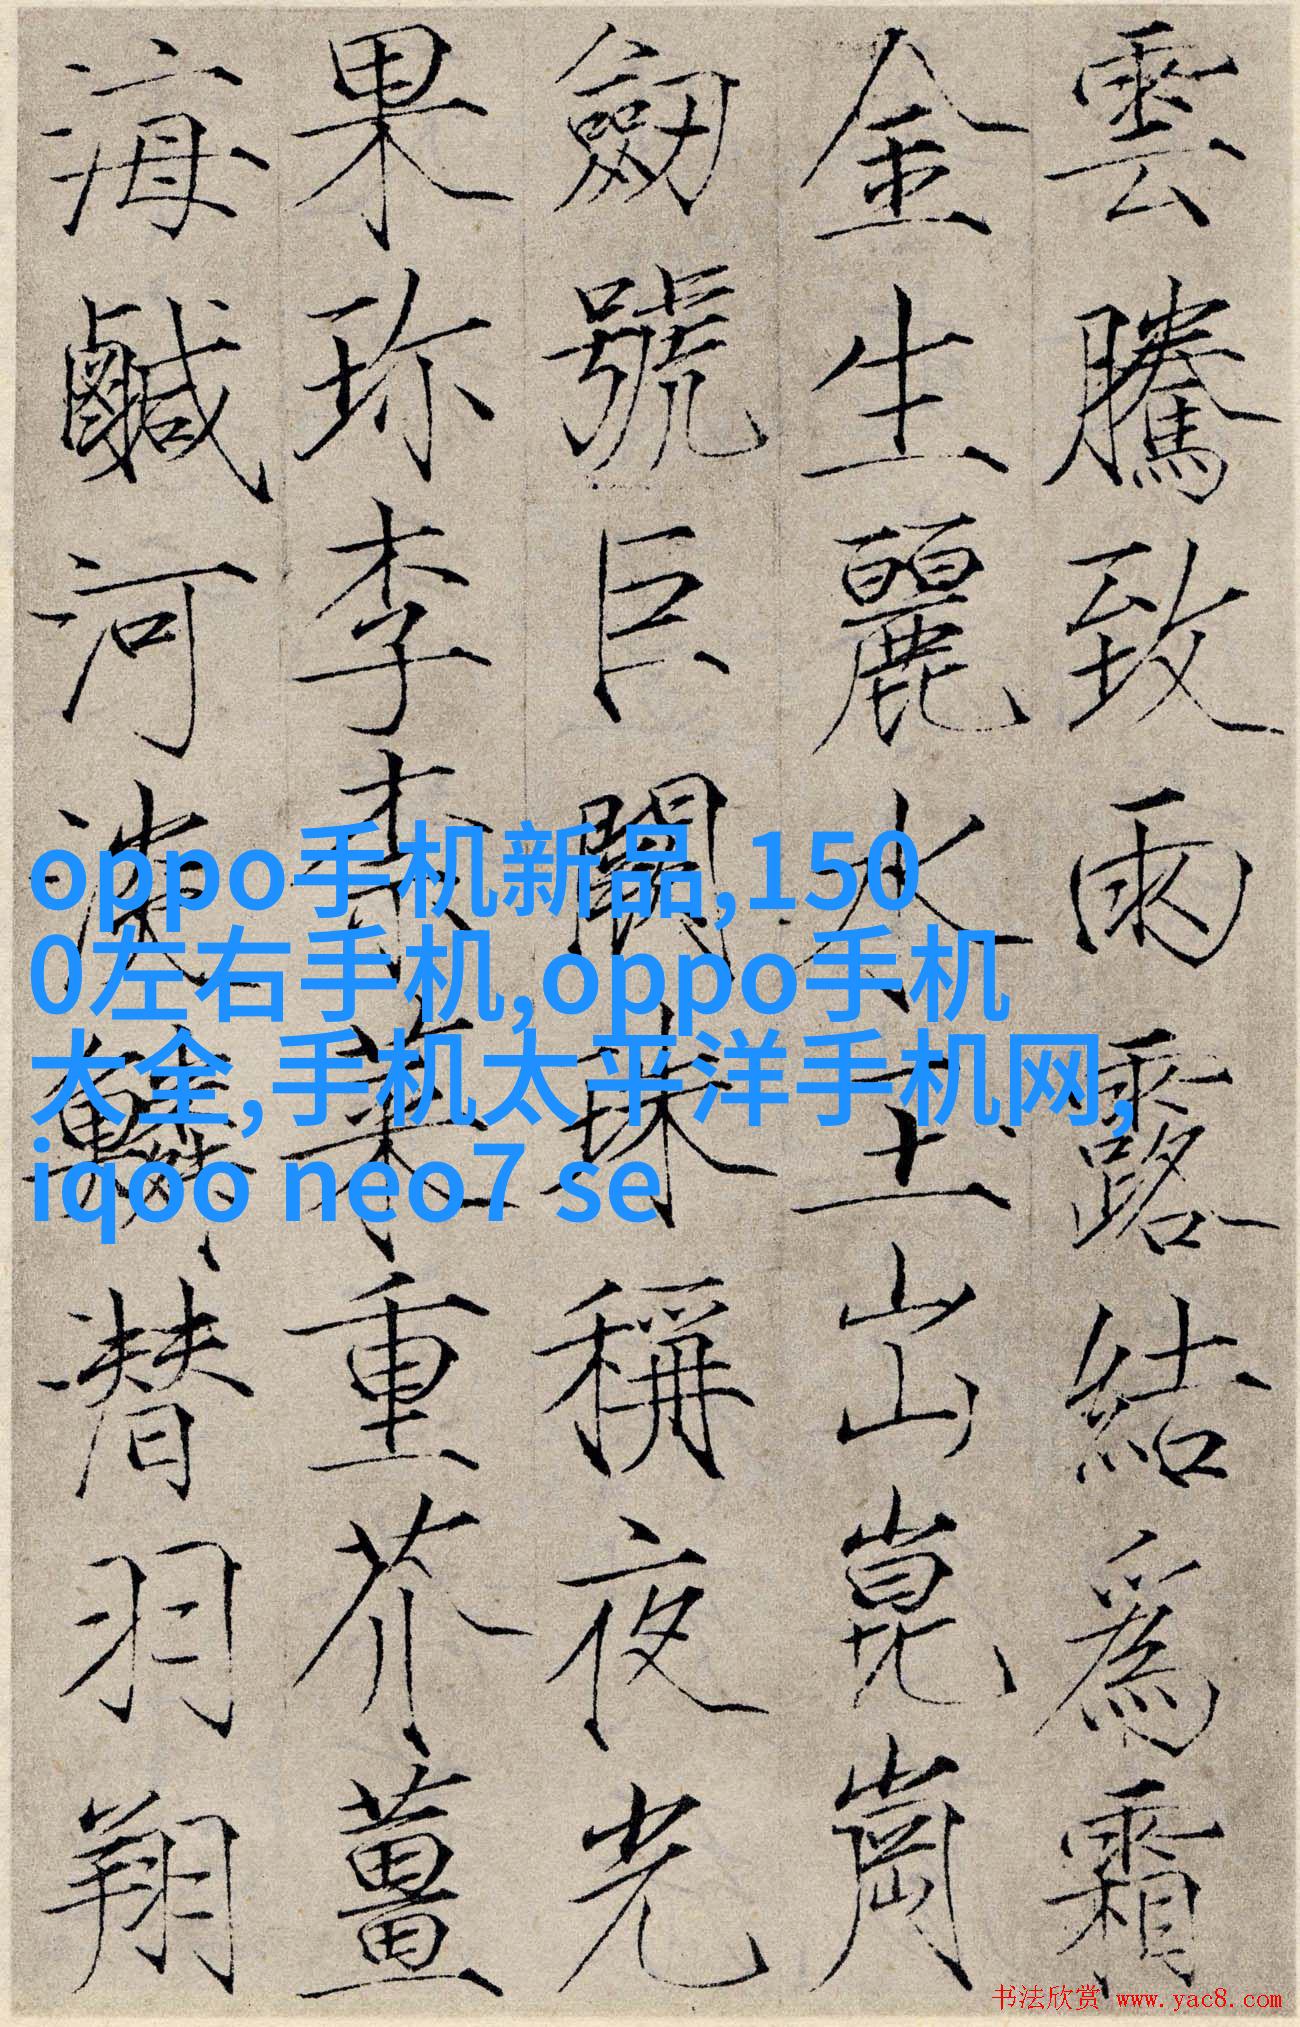 雲騰致雨露結爲霜
金生麗水玉出崑崗
劒號巨闕珠稱夜光
果珎李柰菜重芥薑
海鹹河淡鱗潛羽翔
oppo手机新品,150
0左右手机,oppo手机
大全,手机太平洋手机网,
iqoo neo7 se
书法欣赏 www.yac8.com